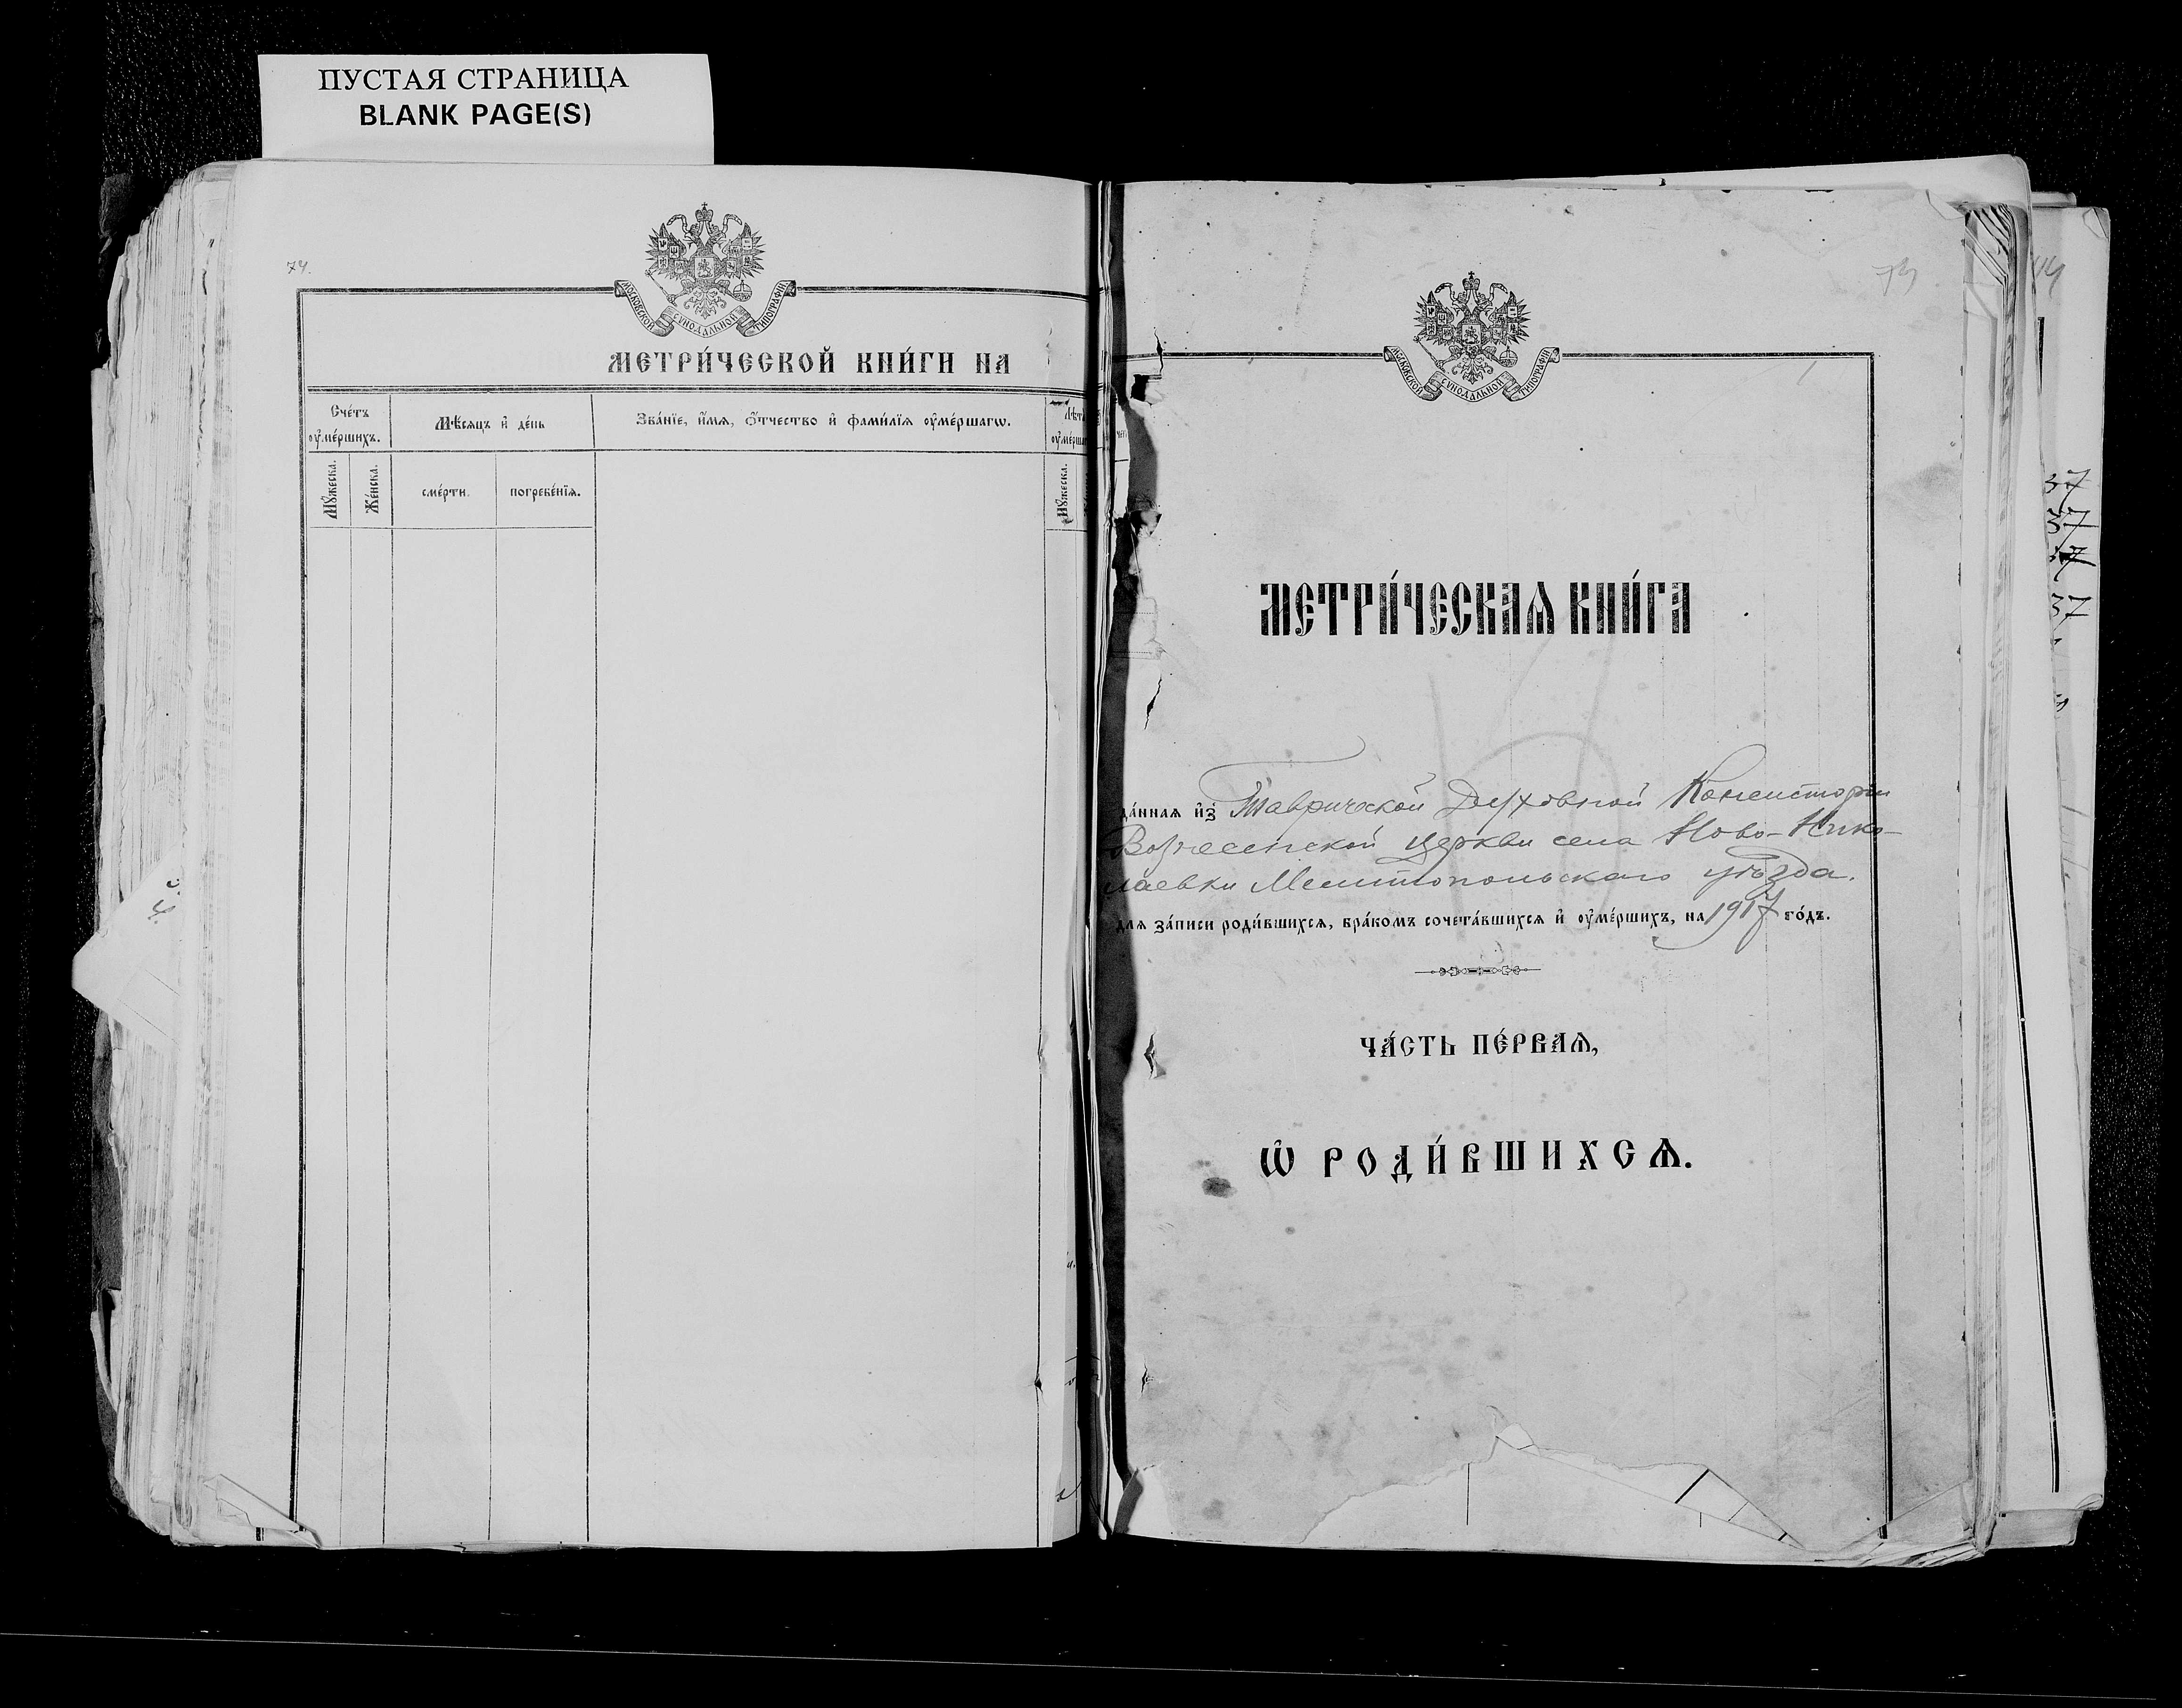 ПУСТАЯ СТРАНИЦА
BLANK PAGE(S)
74.
МОСКОВСКОЙ СѴНОДАЛЬНОЙ ТИПОГРАФІИ
МЕТРИ́ЧЕСКОЙ КНИ́ГИ НА
Сче́тъ оу҆ме́ршихъ.
Мѣ́сяцъ и҆ де́нь
Зва́нїе, и҆́мѧ, ѻ҆́тчество и҆ фами́лїѧ оу҆ме́ршагѡ.
Лѣ́та
Мꙋ́жеска.
Же́нска.
сме́рти.
погребе́нїѧ.
Мꙋ́жеска.
МОСКОВСКОЙ СѴНОДАЛЬНОЙ ТИПОГРАФІИ
МЕТРИ́ЧЕСКАѦ КНИ́ГА
да́ннаѧ и҆з̾ Таврической Духовной Консистории
Вознесенской церкви села Ново-Нико-
лаевки Мелитопольскаго уѣзда.
для за́писи роди́вшихсѧ, бра́комъ сочета́вшихсѧ и҆ оу҆ме́ршихъ, на 1917 го́дъ.
ЧА́СТЬ ПЕ́РВАѦ,
Ѡ҆ РОДИ́ВШИХСѦ.
37
37
37
37